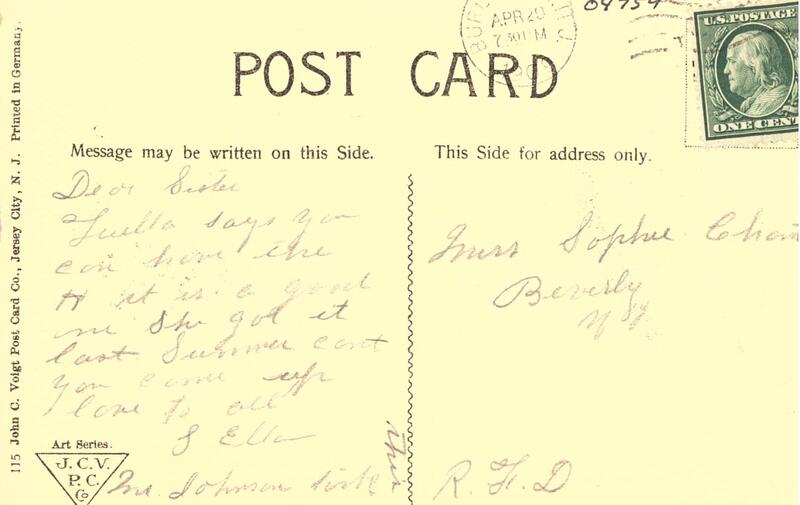 04754
APR 20
7 30 P M
U.S. POSTAGE
ONE CENT
POST CARD
Message may be written on this Side.
This Side for address only.
Dear Sister
Luella says you
can have the
H it is a good
one She got it
last Summer cant
you come up
love to all
S Ella
Mr Johnson sick
Miss Sophie
Beverly
N J
R. F. D
115 John C. Voigt Post Card Co., Jersey City, N. J. Printed in Germany.
Art Series.
J. C. V.
P. C.
Co